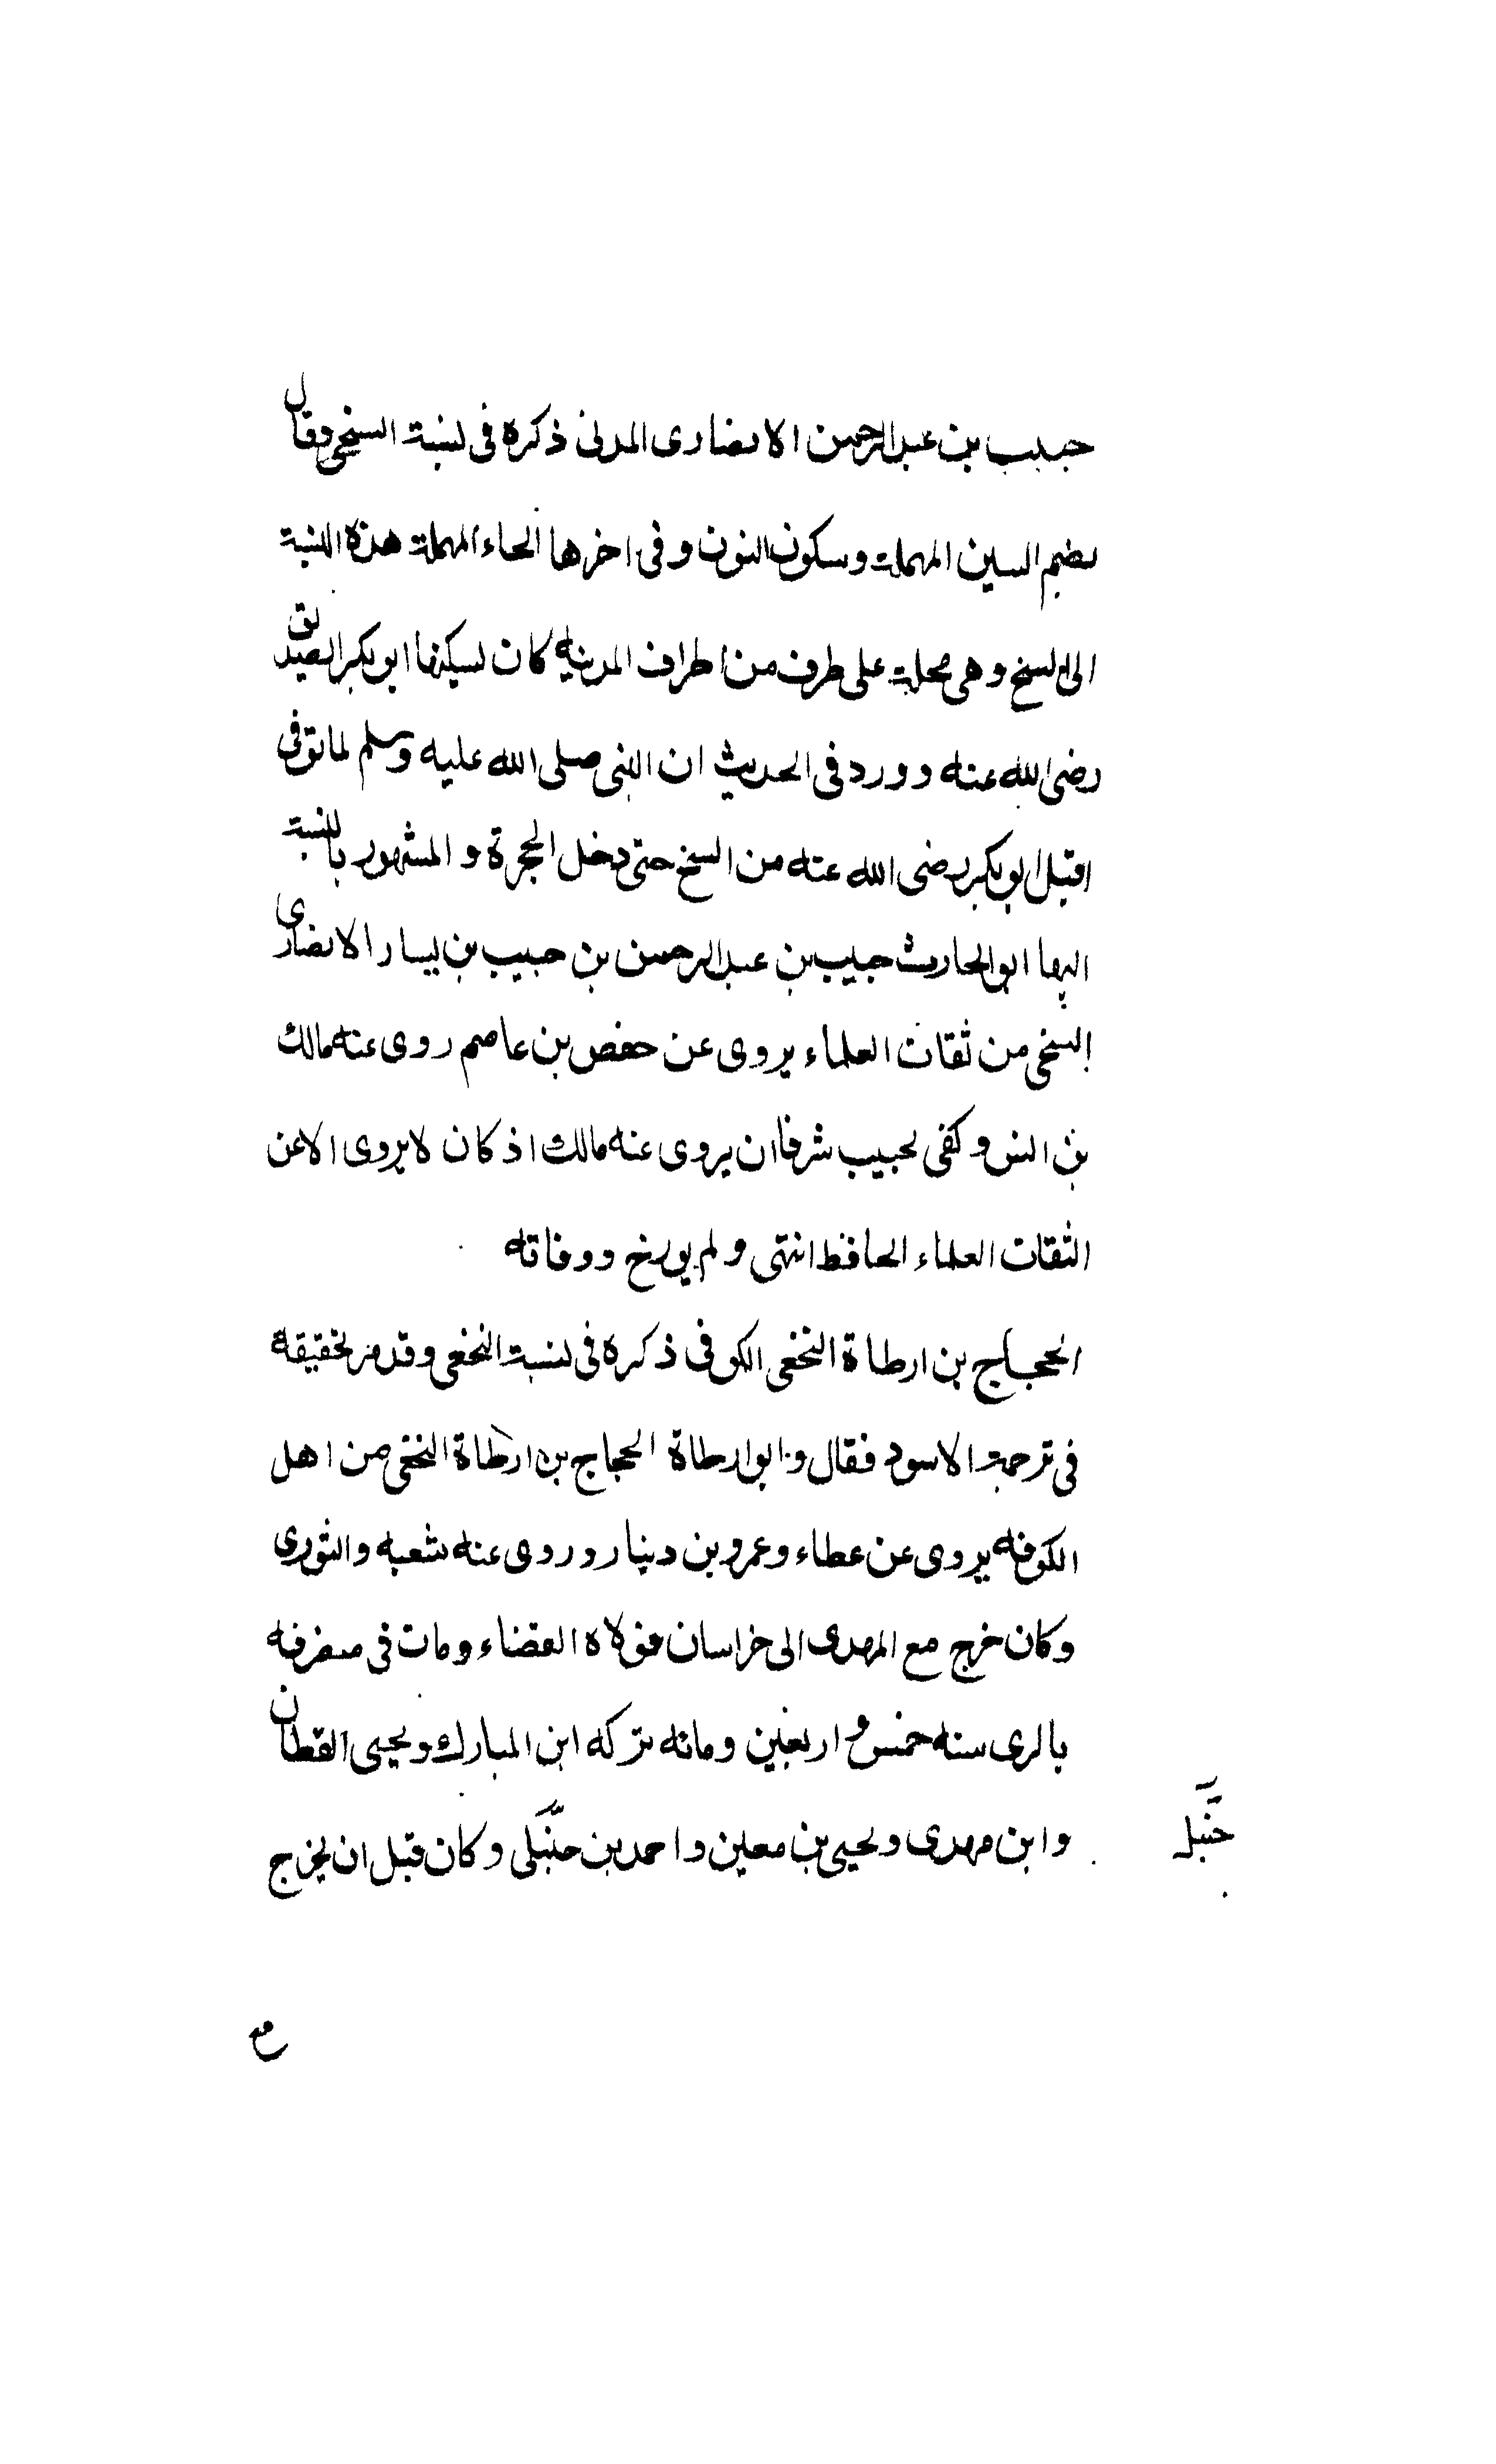 حبيب بن عبدالرحمن الانصاری المدنی ذكره فی نسبة السنحی وقال
بضم السين المهملة وسكون النون وفی اخرها الحاء المهملة هذه النسبة
الی السنح وهی محلة علی طرف من اطراف المدينه كان يسكنها ابو بكر الصديق
رضی الله عنه وورد فی الحديث ان النبی صلی الله عليه وسلم لما توفی
اقبل ابو بكر رضی الله عنه من السنح حتی دخل الحجرة و المشهور بالنسبة
اليها ابو الحارث حبيب بن عبد الرحمن بن حبيب بن يسار الانصاری
السنحی من ثقات العلماء يروی عن حفص بن عاصم روی عنه مالك
بن انس وكفی لحبيب شرفا ان يروی عنه مالك اذ كان لا يروی الا عن
الثقات العلماء الحافظ انتهی ولم يورخ ووفاته
الحجاج بن ارطاة النخعی الكوفی ذكره فی نسبة النخعی وقد مر تحقيقه
فی ترجمة الاسود فقال و ابو ارطاة الحجاج بن ارطاة النخعی من اهل
الكوفه يروی عن عطاء وعمرو بن دينار وروی عنه شعبه والثوری
وكان خرج مع المهدی الی خراسان فولاه القضاء ومات فی منصرفه
بالری سنه خمس و اربعين ومائه تركه ابن المبارك ويحيی القطان
وابن مهدی ويحيی بن معين واحمد بن حنبلی وكان قبل ان يخرج
حنبل